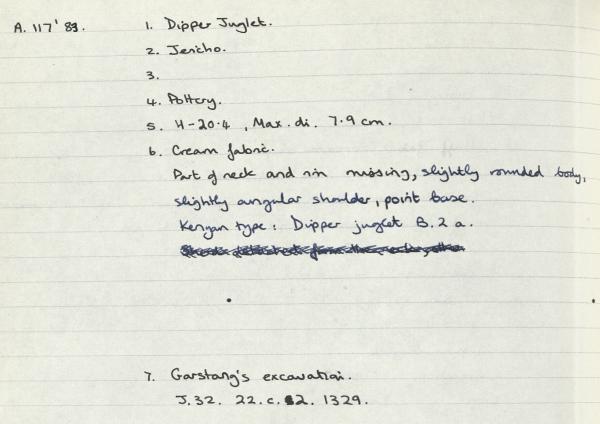 A. 117' 83. 1. Dipper Juglet.
2. Jericho.
3.
4. Pottery.
5. H-20.4, Max. di. 7.9 cm.
6. Cream fabric.
Part of neck and rim missing, slightly rounded body,
slightly angular shoulder, point base.
Kenyan type: Dipper juglet B.2 a.
7. Garstang's excavation.
J.32. 22.c. 2. 1329.